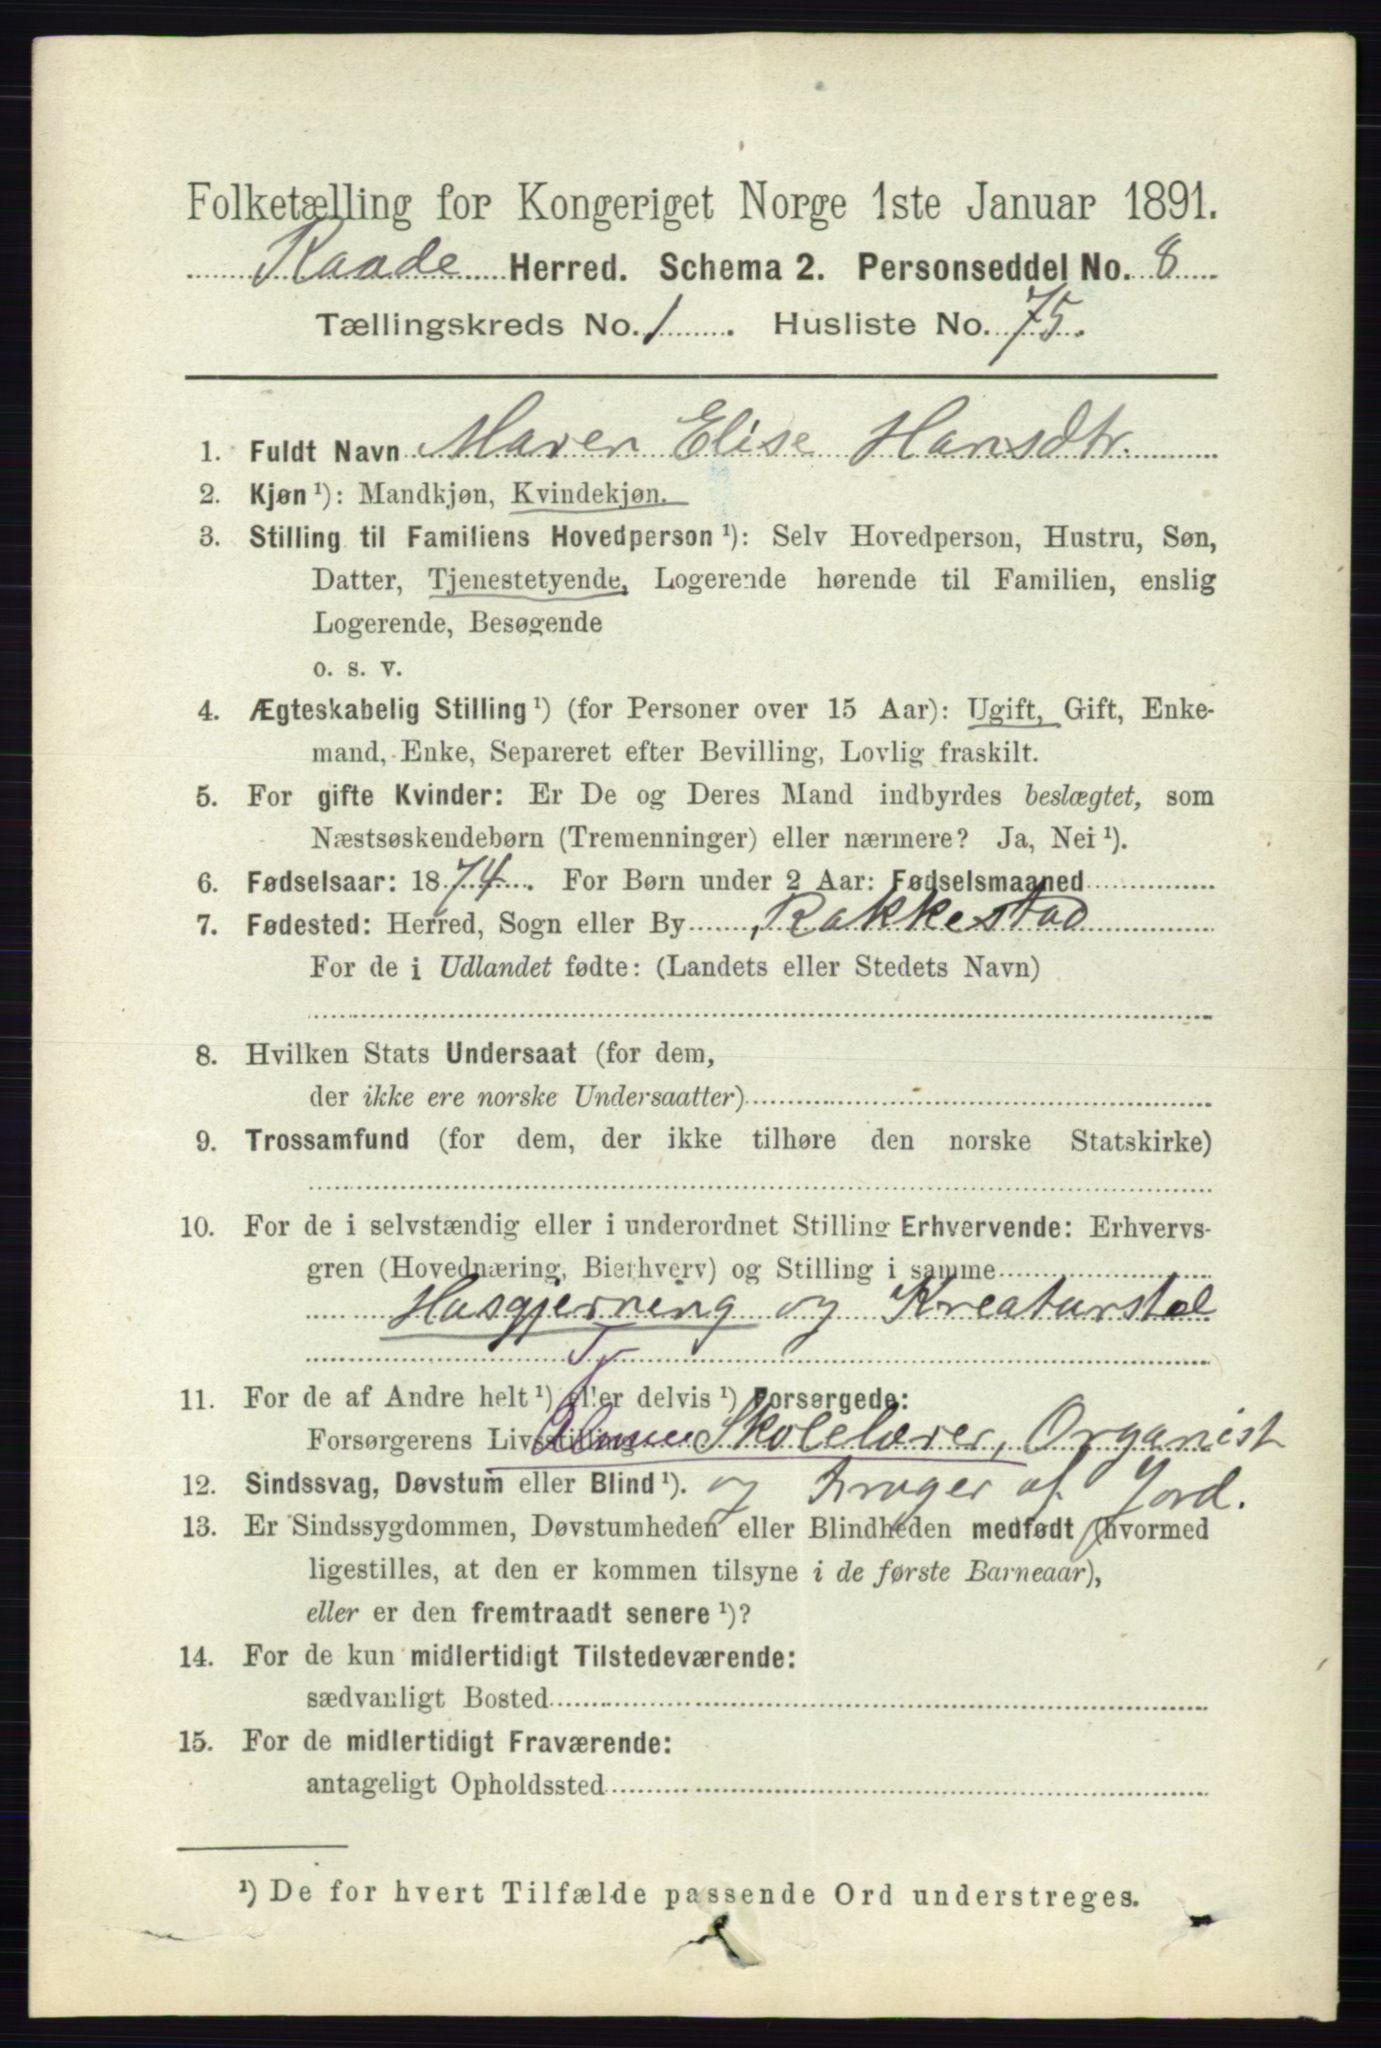 Folketælling for Kongeriget Norge 1ste Januar 1891.
Raade Herred. Schema 2. Personseddel No. 8
Tællingskreds No. 1. Husliste No. 75.
1. Fuldt Navn Maren Elise Hansdtr.
2. Kjøn ¹): Mandkjøn, Kvindekjøn.
3. Stilling til Familiens Hovedperson ¹): Selv Hovedperson, Hustru, Søn,
Datter, Tjenestetyende, Logerende hørende til Familien, enslig
Logerende, Besøgende
o. s. v.
4. Ægteskabelig Stilling ¹) (for Personer over 15 Aar): Ugift, Gift, Enke-
mand, Enke, Separeret efter Bevilling, Lovlig fraskilt.
5. For gifte Kvinder: Er De og Deres Mand indbyrdes beslægtet, som
Næstsøskendebørn (Tremenninger) eller nærmere? Ja, Nei ¹).
6. Fødselsaar: 1874. For Børn under 2 Aar: Fødselsmaaned
7. Fødested: Herred, Sogn eller By Rakkestad
For de i Udlandet fødte: (Landets eller Stedets Navn)
8. Hvilken Stats Undersaat (for dem,
der ikke ere norske Undersaatter)
9. Trossamfund (for dem, der ikke tilhøre den norske Statskirke)
10. For de i selvstændig eller i underordnet Stilling Erhvervende: Erhvervs-
gren (Hovednæring, Bierhverv) og Stilling i samme
Husgjerning og Kreaturstel
11. For de af Andre helt ¹) eller delvis ¹) Forsørgede:
Forsørgerens Livsstilling Skolelærer, Organist
12. Sindssvag, Døvstum eller Blind ¹). og Bruger af Jord.
13. Er Sindssygdommen, Døvstumheden eller Blindheden medfødt (hvormed
ligestilles, at den er kommen tilsyne i de første Barneaar),
eller er den fremtraadt senere ¹)?
14. For de kun midlertidigt Tilstedeværende:
sædvanligt Bosted
15. For de midlertidigt Fraværende:
antageligt Opholdssted
¹) De for hvert Tilfælde passende Ord understreges.